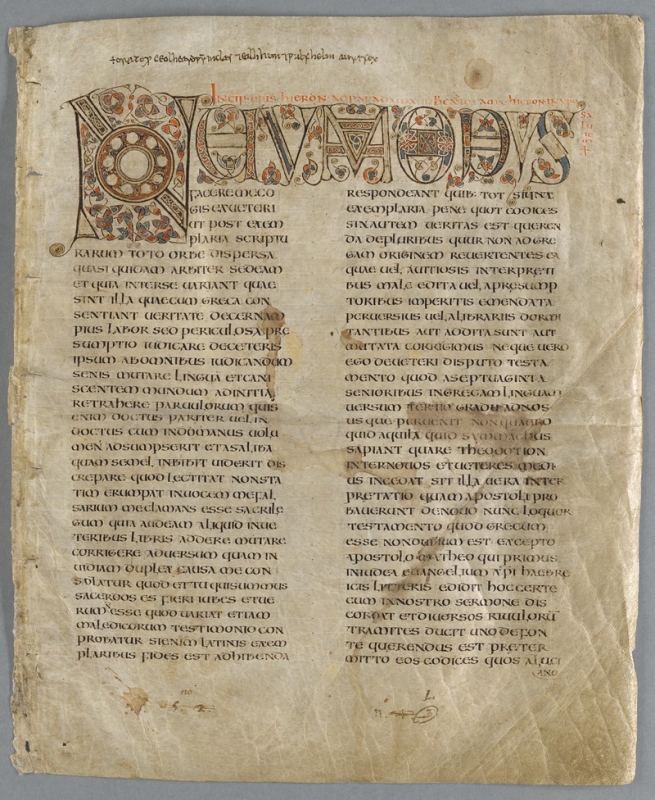 + orate p ceolheard pr niclas 7 ealhhun 7 wulfhelm aurifex
INCIP EPIS HIERON
NOVVM OPVS
FACERE ME CO
GIS EX UETERI
UT POST EXEM
PLARIA SCRIPTU
RARUM TOTO ORBE DISPERSA
QUASI QUIDAM ARBITER SEDEAM
ET QUIA INTER SE UARIANT QUAE
SINT ILLA QUAE CUM GRECA CON
SENTIANT UERITATE DECERNAM
PIUS LABOR SED PERICULOSA PRE
SUMPTIO IUDICARE DE CETERIS
IPSUM AB OMNIBUS IUDICANDUM
SENIS MUTARE LINGUĀ ET CANI
SCENTEM MUNDUM AD INITIA
RETRAHERE PARUULORUM QUIS
ENIM DOCTUS PARITER UEL IN
DOCTUS CUM IN DOMANUS UOLU
MEN ADSUMPSERIT ET A SALIBA
QUAM SEMEL INBIBIT UIDERIT DIS
CREPARE QUOD LECTITAT NON STA
TIM ERUMPAT IN UOCEM ME FAL
SARIUM ME CLAMANS ESSE SACRILE
GUM QUIA AUDEAM ALIQUID IN UE
TERIBUS LIBRIS ADDERE MUTARE
CORRIGERE ADUERSUM QUAM IN
UIDIAM DUPLEX CAUSA ME CON
SOLATUR QUOD ET TU QUI SUMMUS
SACERDOS ES FIERI IUBES ET UE
RUM ESSE QUOD UARIAT ETIAM
MALEDICORUM TESTIMONIO CON
PROBATUR SI ENIM LATINIS EXEM
PLARIBUS FIDES EST ADHIBENDA
RESPONDEANT QUIB: TOT SIUNT
EXEMPLARIA PENE QUOT CODICES
SIN AUTEM UERITAS EST QUEREN
DA DE PLURIBUS QUUR NON AD GRE
GAM ORIGINEM REUERTENTES EA
QUAE UEL A UITIOSIS INTERPRETI
BUS MALE EDITA UEL A PRESUMP
TORIBUS IMPERITIS EMENDATA
PERUERSIUS UEL A LIBRARIIS DORMI
TANTIBUS AUT ADDITA SUNT AUT
MUTATA CORRIGIMUS NEQUE UERO
EGO DE UETERI DISPUTO TESTA
MENTO QUOD A SEPTUAGINTA
SENIORIBUS IN GREGAM LINGUAM
UERSUM TERTIO GRADU AD NOS
USQUE PERUENIT NON QUAERO
QUID AQUILA QUID SYMMACHUS
SAPIANT QUARE THEODOTION
INTER NOUOS ET UETERES MEDI
US INCEDAT SIT ILLA UERA INTER
PRETATIO QUAM APOSTOLI PRO
BAUERUNT DE NOUO NUNC LOQUOR
TESTAMENTO QUOD GRECUM
ESSE NON DUBIUM EST EXCEPTO
APOSTOLO MATHEO QUI PRIMUS
IN IUDEA EUANGELIUM XPI HAEBRE
ICIS LITTERIS EDIDIT HOC CERTE
CUM IN NOSTRO SERMONE DIS
CORDAT ET DIUERSOS RIUULORŪ
TRAMITES DUCIT UNO DE FON
TE QUERENDUS EST PRETER
MITTO EOS CODICES QUOS A LUCI
ANO